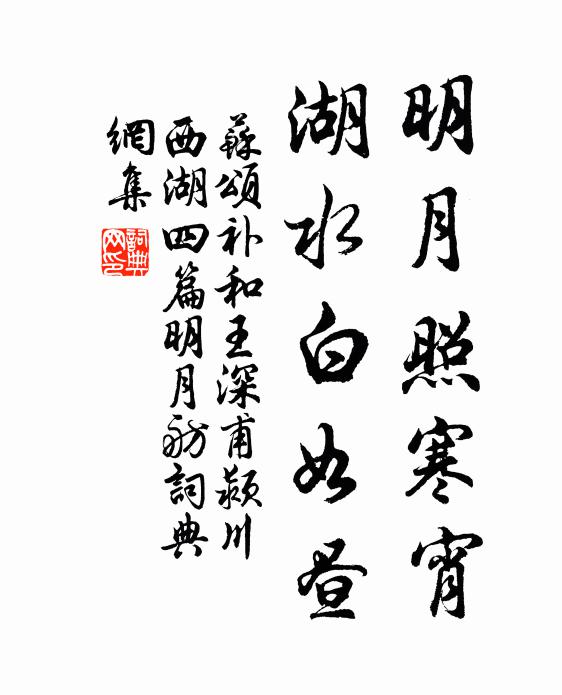 明月照寒宵
湖水白如昼
蘇頌补和王深甫颍川
西湖四篇明月舫詞典
網集
詞典
网印